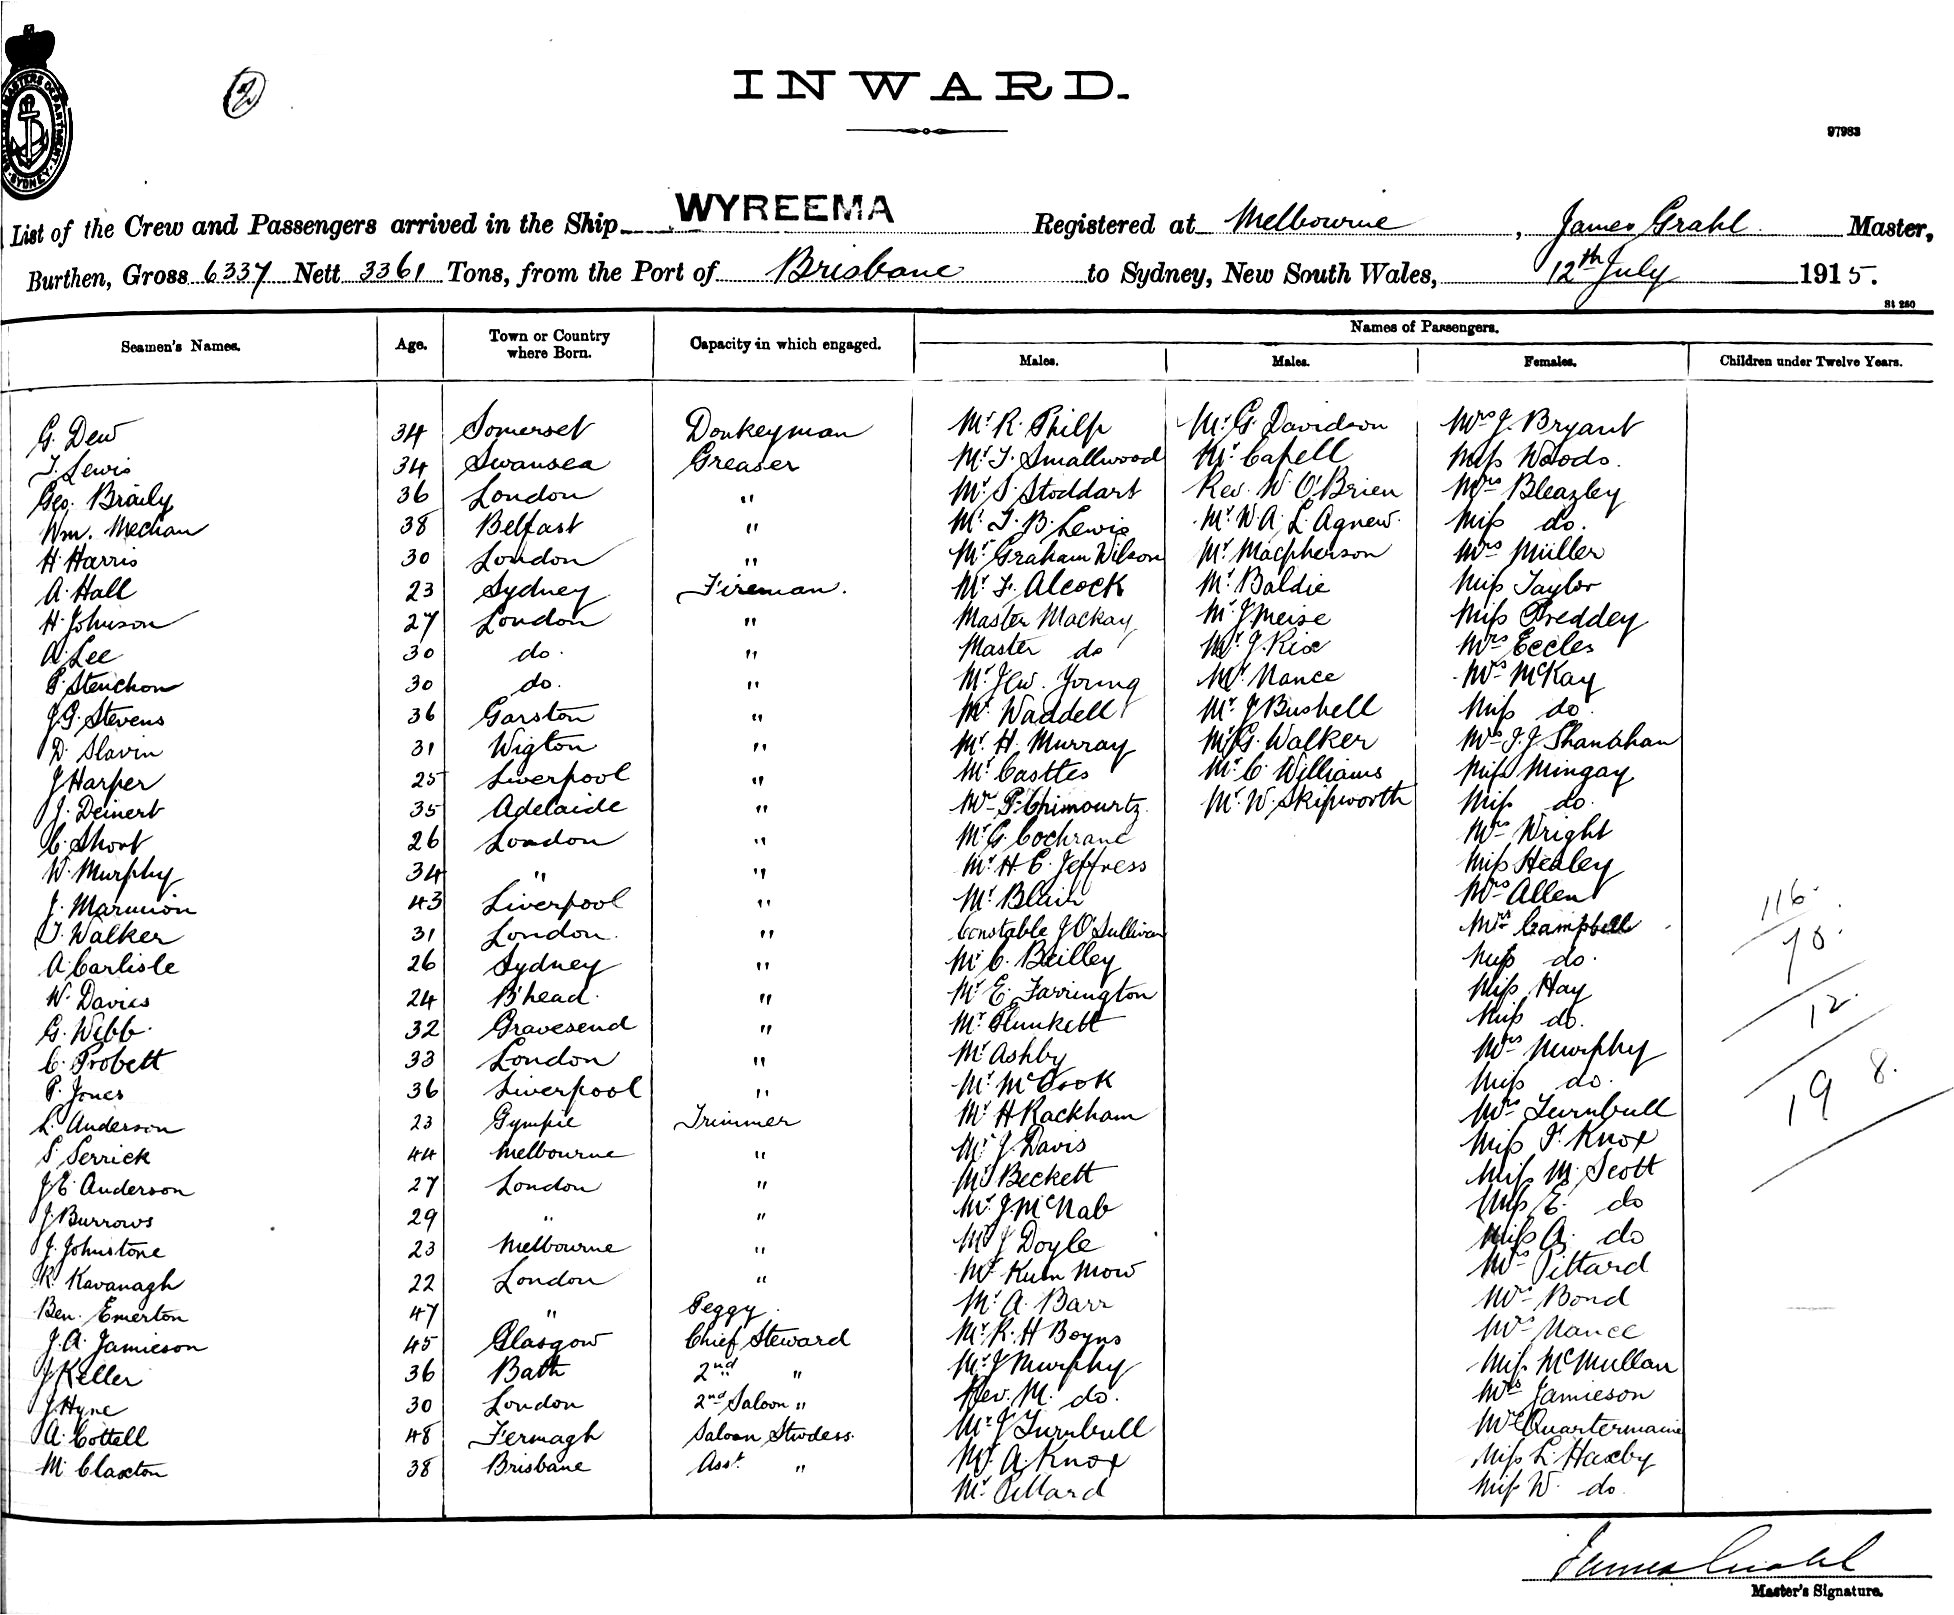 (2)
INWARD.
97983
List of the Crew and Passengers arrived in the Ship WYREEMA Registered at Melbourne, James Grahl Master,
Burthen, Gross 6337 Nett 3361 Tons, from the Port of Brisbane to Sydney, New South Wales, 12th July 1915.
St 250
Names of Passengers.
Seamen's Names. Age. Town or Country where Born. Capacity in which engaged. Males. Males. Females. Children under Twelve Years.
G. Dew 34 Somerset Donkeyman Mr R. Philp Mr G. Davidson Mrs J. Bryant
T. Lewis 34 Swansea Greaser Mr T. Smallwood Mr Capell Miss Woods.
Geo. Braily 36 London " Mr S. Stoddart Rev. W. O'Brien Mrs Bleazley
Wm. Mechan 38 Belfast " Mr T. B. Lewis Mr W. A. L. Agnew. Miss do.
H. Harris 30 London " Mr Graham Wilson Mr Macpherson Mrs Müller
A. Hall 23 Sydney Fireman. Mr F. Alcock Mr Baldie Miss Taylor
H. Johnson 27 London " Master Mackay Mr J Meise Miss Preddey
A. Lee 30 do. " Master do Mr J. Rix Mrs Eccles
P. Stenchon 30 do. " Mr Young Mr Nance Mrs McKay
J. G. Stevens 36 Garston " Mr Waddell Mr J Bushell Miss do.
D. Slavin 31 Wigton " Mr H. Murray Mr G. Walker Mrs J. J. Shanahan
J Harper 25 Liverpool " Mr Castles Mr C. Williams Miss Mingay
J. Deinert 35 Adelaide " Mr P. Chimourtz Mr W. Skipworth Miss do.
C. Short 26 London " Mr G. Cochrane Mrs Wright
W. Murphy 34 " " Mr H. C. Jeffress Miss Healey
J. Marmion 43 Liverpool " Mr Blair Mrs Allen
T. Walker 31 London. " Constable J O'Sullivan Mrs Campbell
A. Carlisle 26 Sydney " Mr C. Bailley Miss do.
W. Davies 24 B'head. " Mr E. Farrington Miss Hay
G. Webb. 32 Gravesend " Mr Plunkett Miss do.
C. Probett 33 London " Mr Ashby Mrs Murphy
P. Jones 36 Liverpool " Mr McCook Miss do.
L. Anderson 23 Gympie Trimmer Mr H Rackham Mrs Turnbull
S. Serrick 44 Melbourne " Mr J. Davis Miss F. Knox
J. E. Anderson 27 London " Mr Beckett Miss M. Scott
J. Burrows 29 " " Mr J. McNab Miss E. do
J. Johnstone 23 Melbourne " Mr J Doyle Miss A. do
R. Kavanagh 22 London " Mr Kum Mow Mrs Pittard
Ben. Emerton 47 " Peggy. Mr A. Barr Mrs Bond
J. A. Jamieson 45 Glasgow Chief Steward Mr R. H Boyns Mrs Nance
J Keller 36 Bath 2nd " Mr J Murphy Miss McMullan
J Hyne 30 London 2nd Saloon " Rev. M. do. Mrs Jamieson
A. Cottell 48 Fermagh Saloon Stwdess. Mr J Turnbull Mrs Quartermaine
M. Claxton 38 Brisbane Asst. " Mr A. Knox Miss L. Haxby
Mr Pittard Miss W. do.
116.
70.
12.
19 8.
James Grahl
Master's Signature.